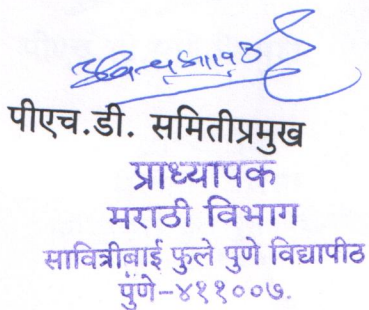 पीएच.डी. समितीप्रमुख
प्राध्यापक
मराठी विभाग
सावित्रीबाई फुले पुणे विद्यापीठ
पुणे-४११००७.